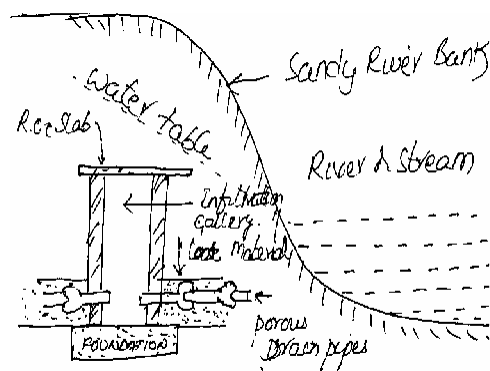 Sandy River Bank
water table
R.C.C Slab
River & Stream
Infiltration
gallery
Materials
porous
Drain pipes
FOUNDATION